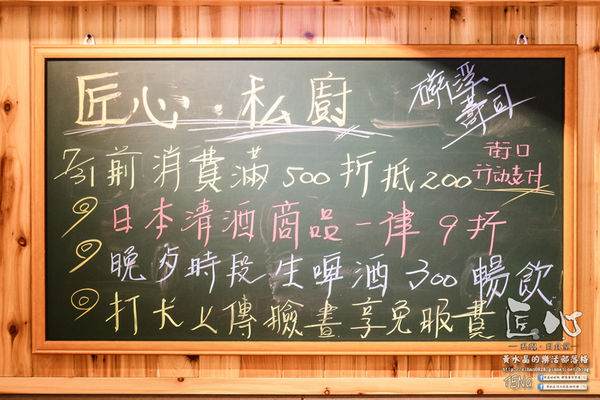 匠心·私廚
磯淳壽司
7/31前消費滿500折抵200
街口
行動支付
日本清酒商品一律9折
晚歺時段生啤酒300暢飲
打卡上傳臉書享免服費
匠心
黃水晶的樂活部落格